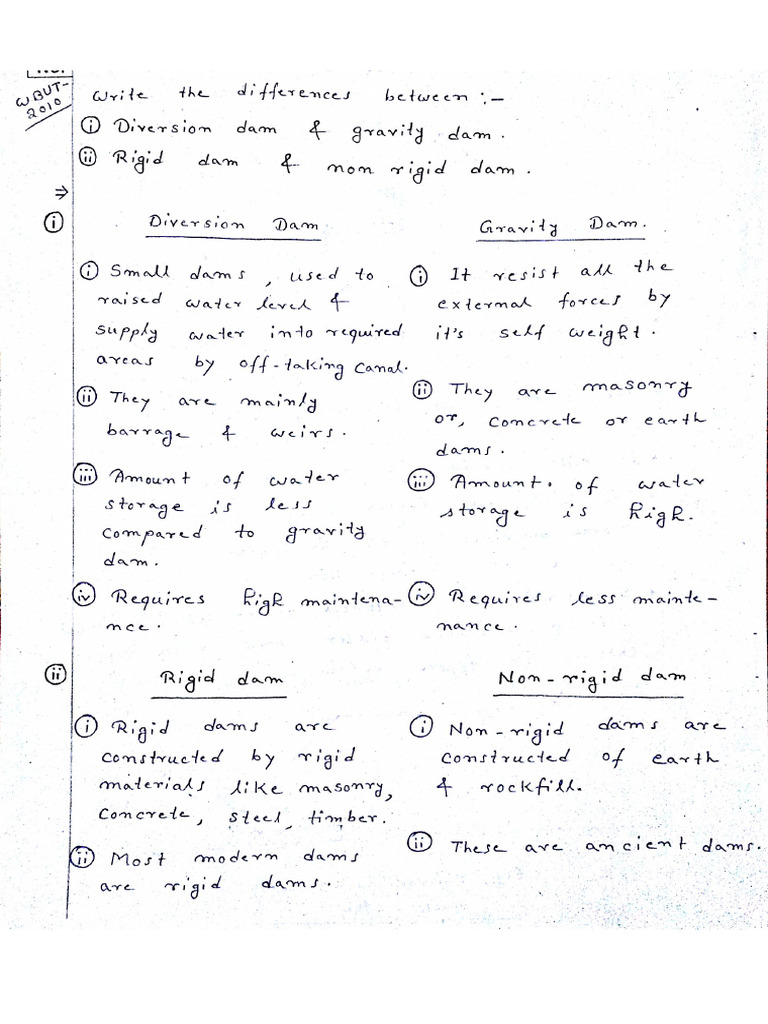 No.
WBUT-
2010
Write the differences between :-
(i) Diversion dam & gravity dam.
(ii) Rigid dam & non rigid dam.
⇒
(i) Diversion Dam Gravity Dam.
(i) Small dams, used to (i) It resist all the
raised water level & external forces by
supply water into required it's self weight.
areas by off-taking canal.
(ii) They are mainly (ii) They are masonry
barrage & weirs. or, concrete or earth
dams.
(iii) Amount of water (iii) Amount. of water
storage is less storage is high.
compared to gravity
dam.
(iv) Requires high maintena- (iv) Requires less mainte-
nce. nance.
(ii) Rigid dam Non-rigid dam
(i) Rigid dams are (i) Non-rigid dams are
constructed by rigid constructed of earth
materials like masonry, & rockfill.
concrete, steel, timber.
(ii) Most modern dams (ii) These are ancient dams.
are rigid dams.